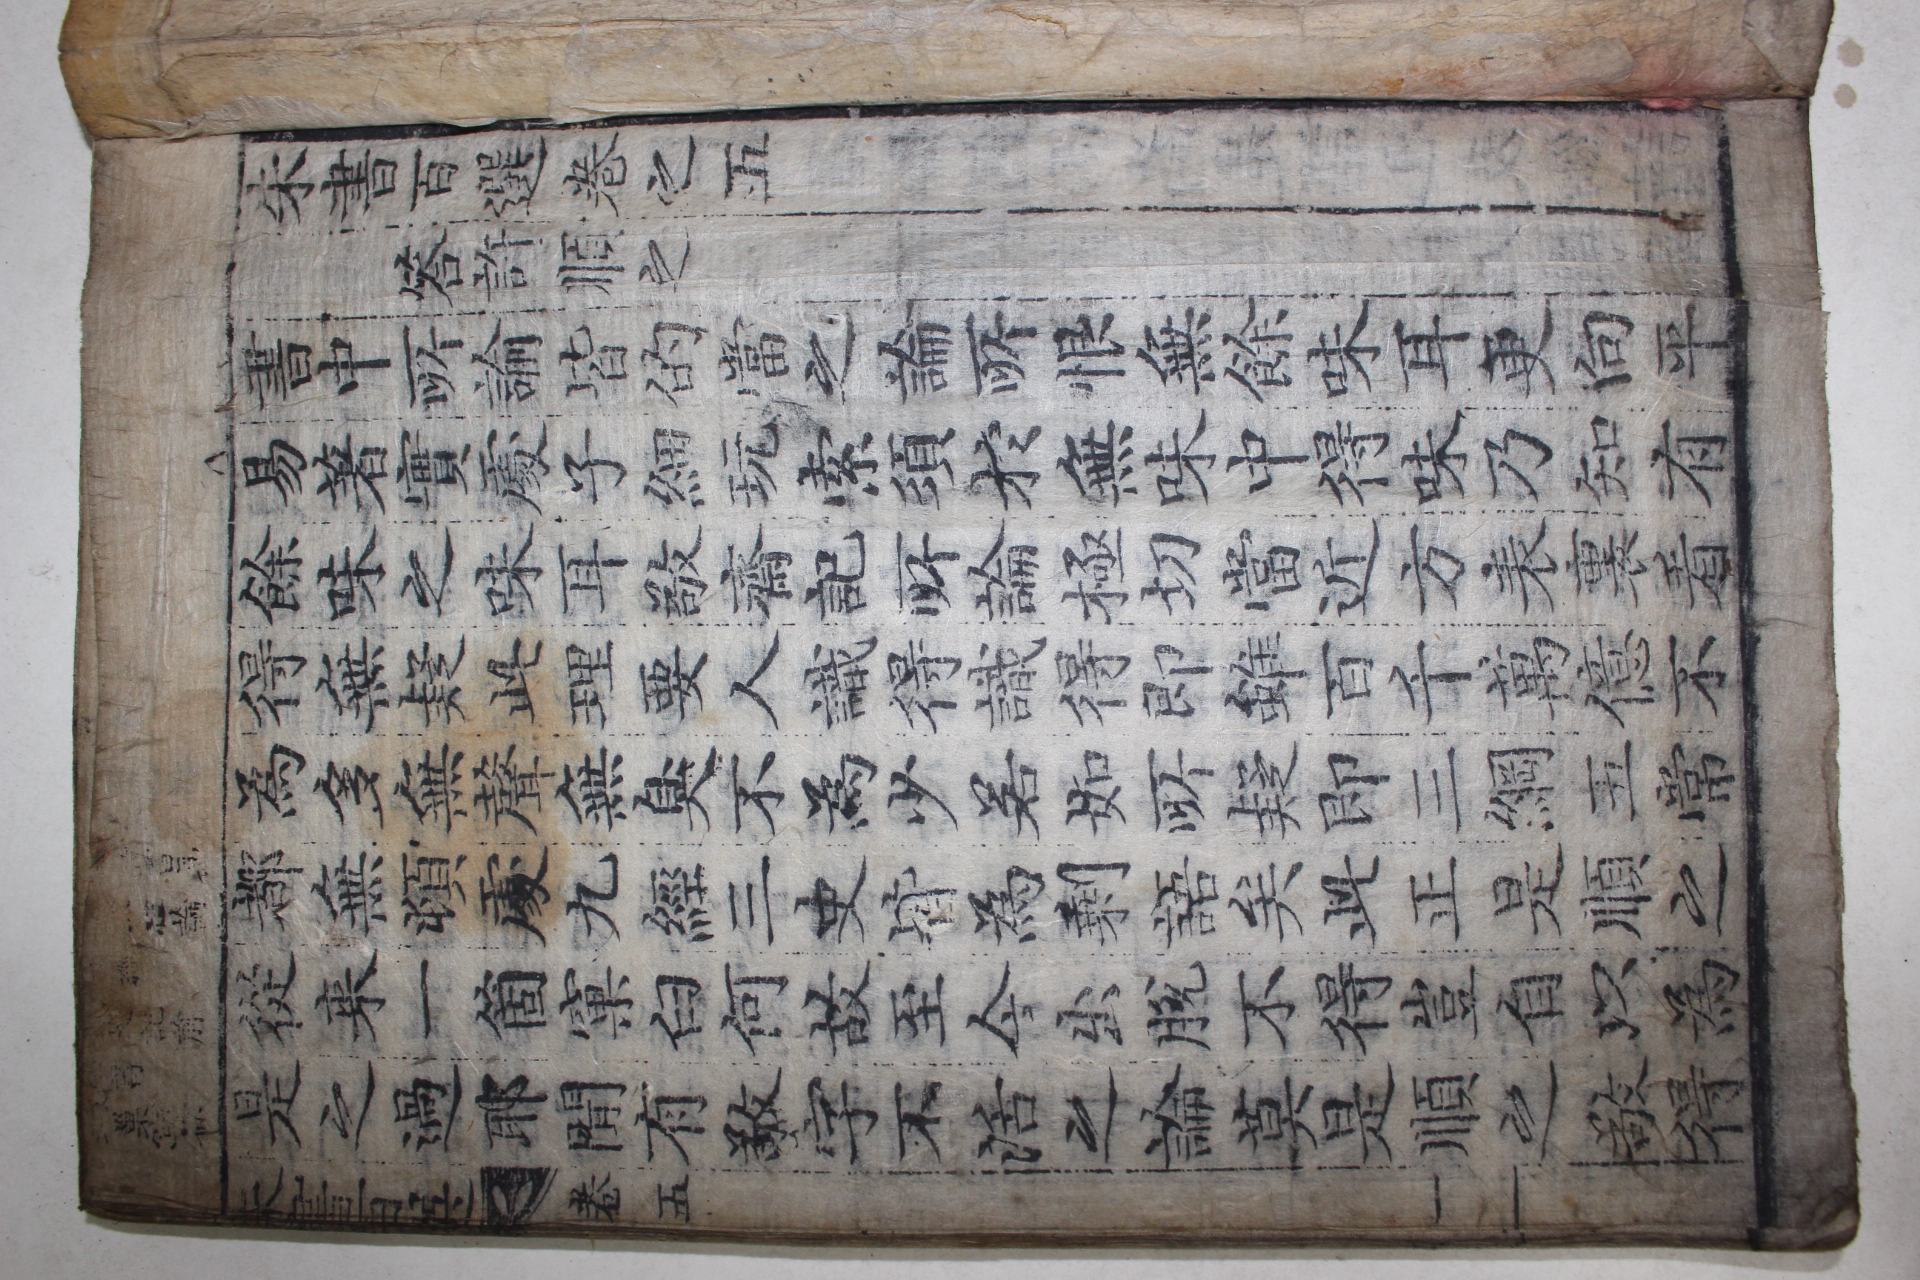 朱書百選卷之五
答許順之
書中所論皆的當之論所恨無餘味耳更向平
易著實處子細玩索須於無味中得味乃知有
餘味之味耳敬齋記所論極切當近方表裏看
得無疑此理要人識得識得即雖百千萬億不
為多無聲無臭不為少若如所疑即三綱五常
都無頓處九經三史皆為剩語矣此正是順之
從来一箇窠臼何故至今出脫不得豈自以為
是之過耶聞有敬字不活之論莫是順之敬得
朱書百選 卷五 一